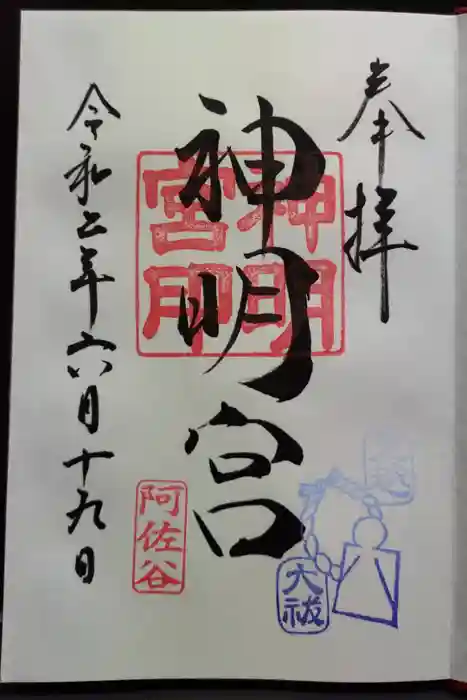 奉拝
神明宮
神明
宮印
令和二年六月十九日
阿佐谷
大祓